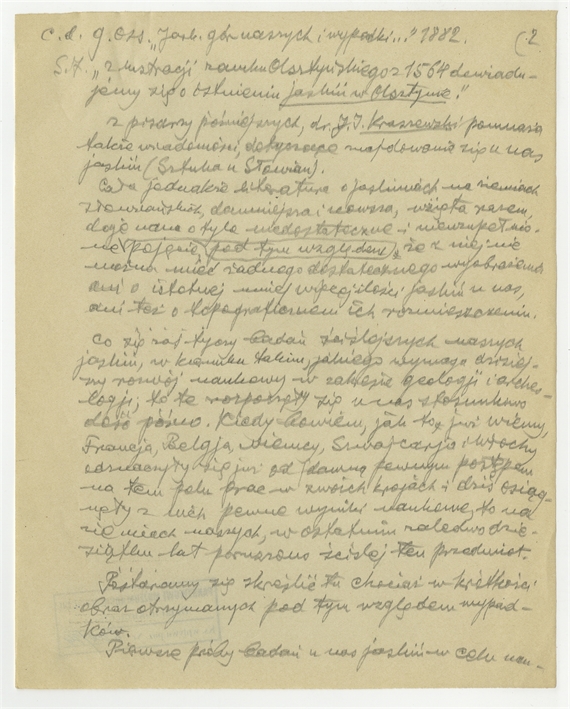 c. d. g. Oss. „Jask. gór naszych i wypadki..." 1882. (2
S. 7. „z lustracji zamku Olsztyńskiego z 1564 dowiadu-
jemy się o istnieniu jaskiń w Olsztynie."
z pisarzy późniejszych, dr. J. I. Kraszewski pomnaża
także wiadomości, dotyczące znajdowania się u nas
jaskiń (Sztuka u Słowian).
Cała jednakże literatura o jaskiniach na ziemiach
słowiańskich, dawniejsza i nowsza, wzięta razem,
daje nam o tyle niedostateczne i nieuzupełnio-
ne pojęcie (pod tym względem), że z niej nie
można mieć żadnego dostatecznego wyobrażenia
ani o istotnej mniej więcej ilości jaskiń u nas,
ani też o topograficznem ich rozmieszczeniu.
Co się zaś tyczy badań ściślejszych naszych
jaskiń, w kierunku takim, jakiego wymaga dzisiej-
szy rozwój naukowy w zakresie geologji i arche-
ologji; to te rozpoczęły się u nas stosunkowo
dość późno. Kiedy bowiem, jak to już wiemy,
Francja, Belgja, Niemcy, Szwajcarja i Włochy
odznaczyły się już od dawna pewnym postępem
na tem polu prac w swoich krajach i dziś osiąg-
nęły z nich pewne wyniki naukowe, to na
ziemiach naszych, w ostatnim zaledwo dzie-
siątku lat poruszono ściślej ten przedmiot.
Postaramy się skreślić tu chociaż w krótkości
obraz otrzymanych pod tym względem wypad-
ków.
Pierwsze próby badań u nas jaskiń w celu nau-